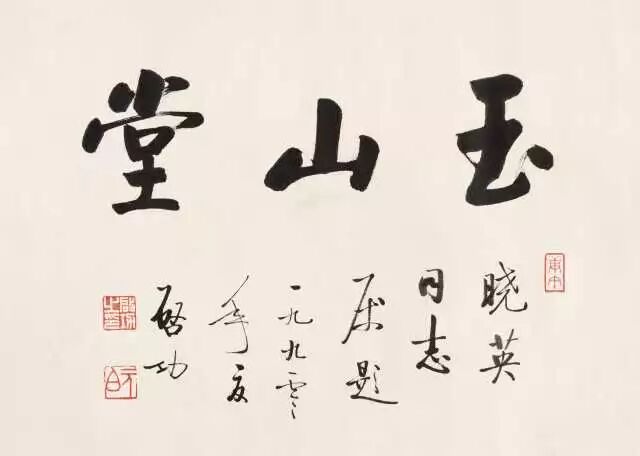 玉山堂
晓英
同志
属题
一九九零
年夏
啓功
元白